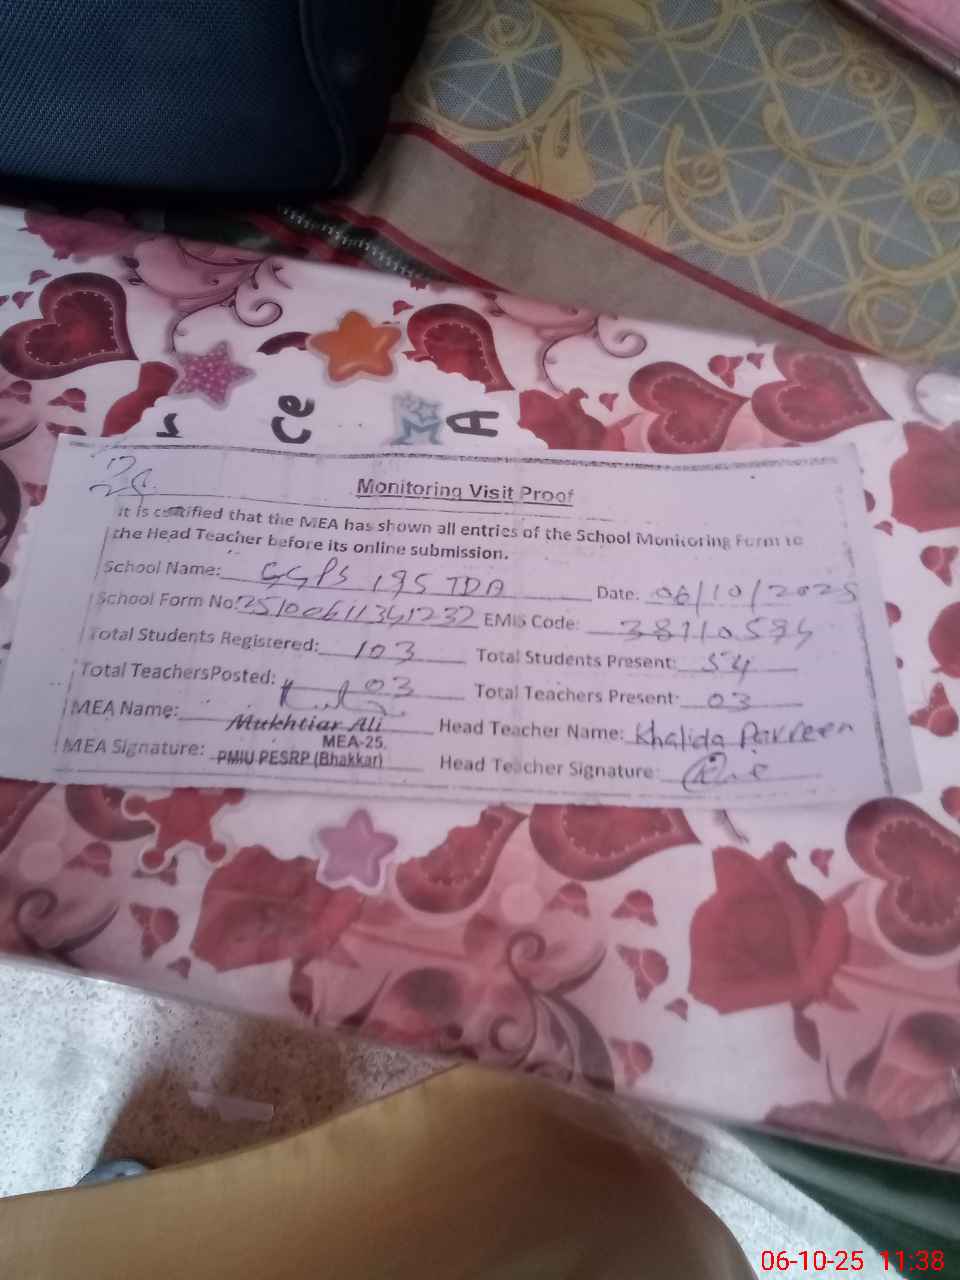 ce
A
Monitoring Visit Proof
It is certified that the MEA has shown all entries of the School Monitoring Form to
the Head Teacher before its online submission.
School Name: GGPS 195 TDA Date: 06/10/2025
School Form No: EMIS Code:
Total Students Registered: 103 Total Students Present: 54
Total TeachersPosted: 03 Total Teachers Present: 03
MEA Name: Mukhtiar Ali Head Teacher Name: Khalida Parveen
MEA Signature: MEA-25. PMIU PESRP (Bhakkar) Head Teacher Signature:
06-10-25 11:38